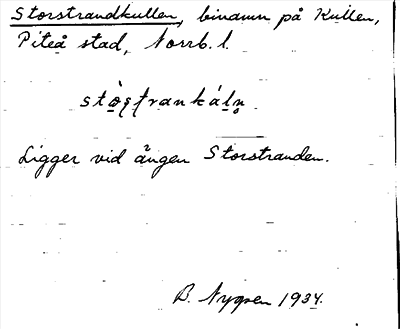 Storstrandkullen, binamn på Kullen,
Piteå stad, Norrb. l.
Ligger vid ängen Storstranden.
B. Nygren 1934.